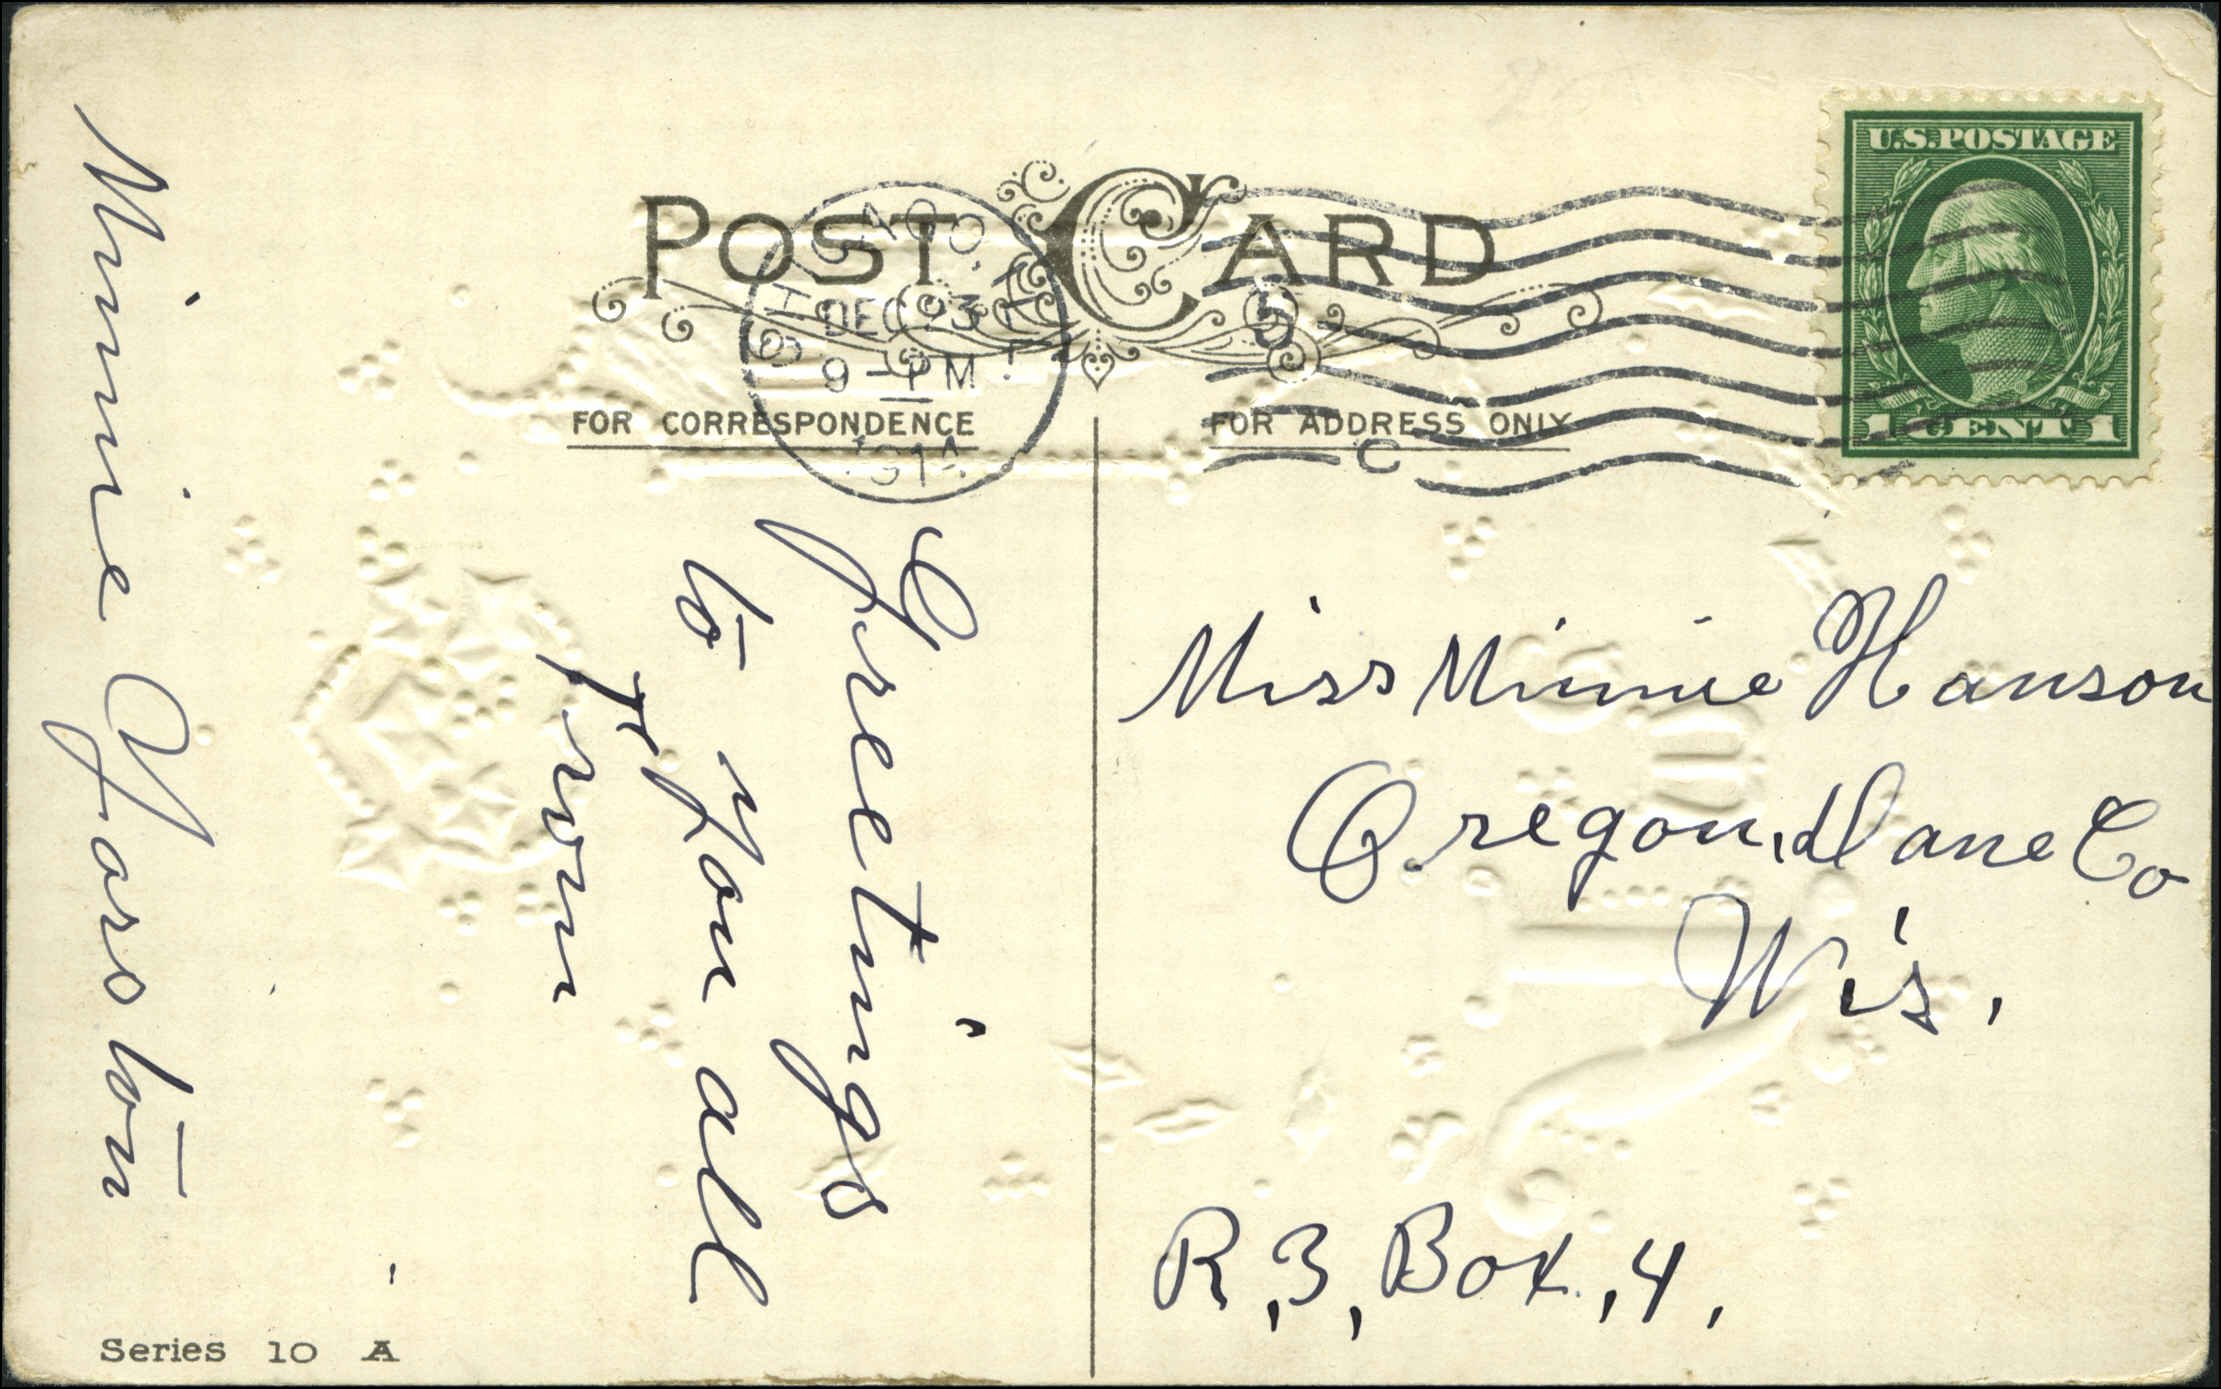 POST CARD
CHICAGO, ILL
DEC 23
9 - PM
1914
5
C
U.S. POSTAGE
1 CENT 1
FOR CORRESPONDENCE
FOR ADDRESS ONLY
Greetings
to you all
from
Minnie Yarston
Miss Minnie Hanson
Oregon, Dane Co
Wis.
R, 3, Box, 4,
Series 10 A